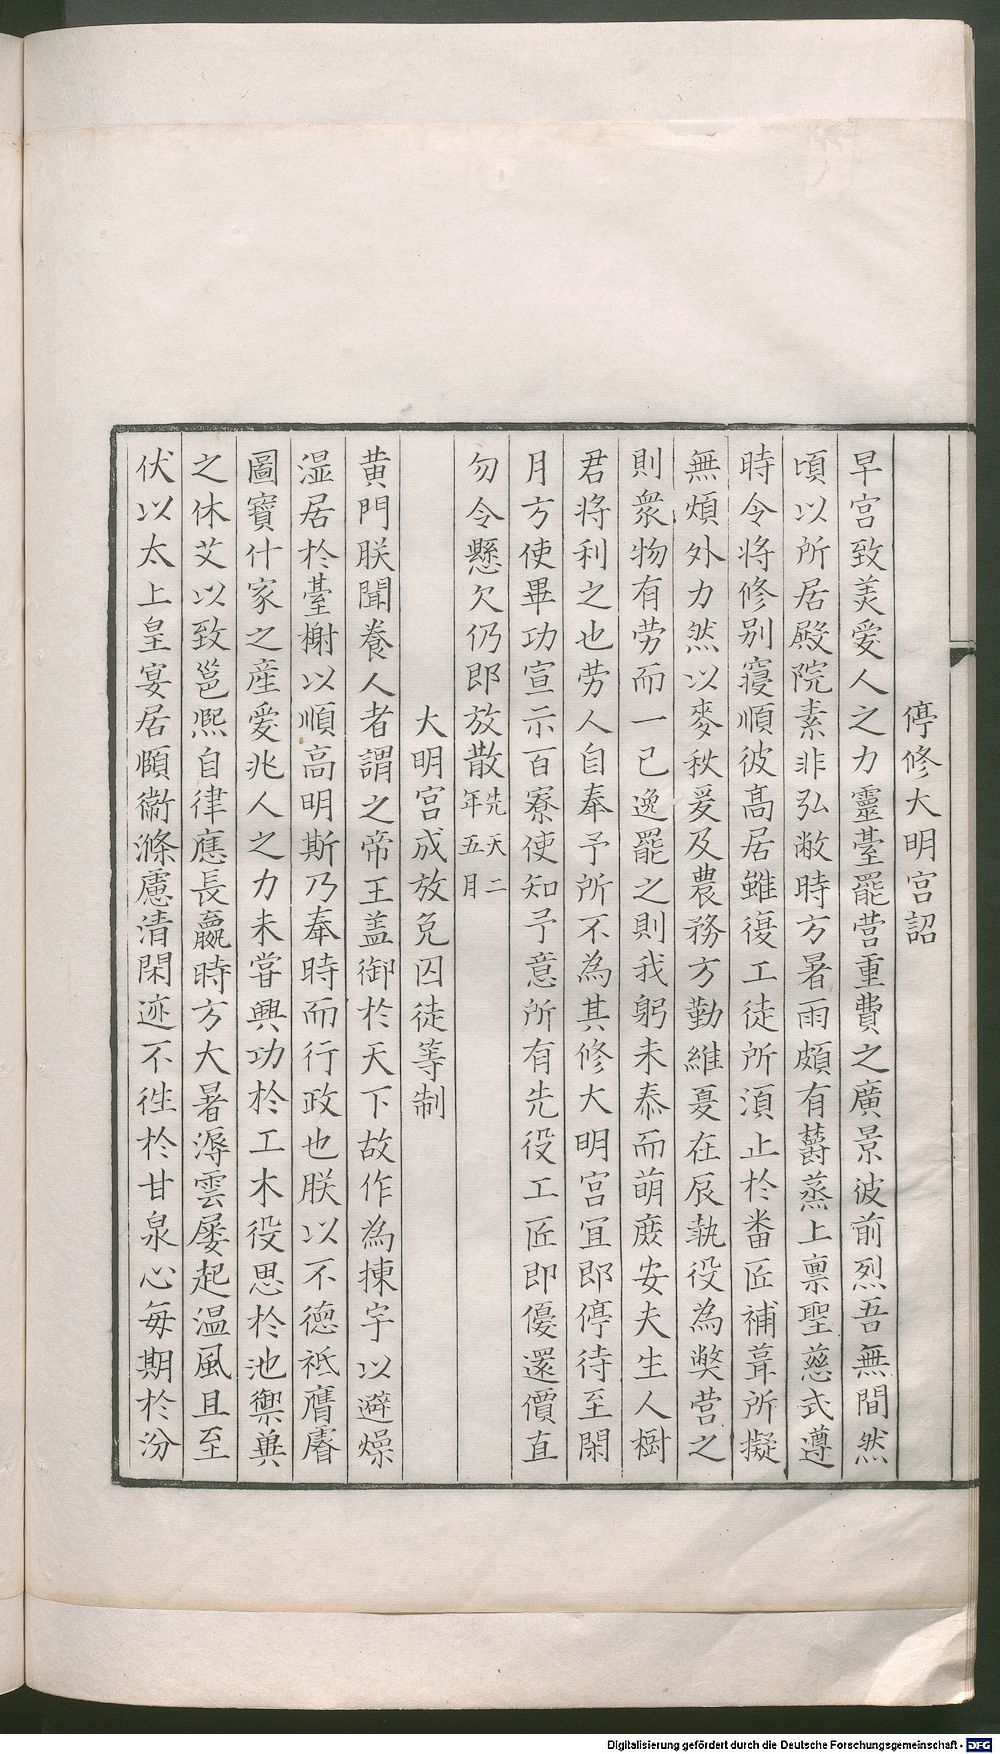 停修大明宫詔
早宫致羙爱人之力靈臺罷营重費之廣景彼前烈吾無間然
頃以所居殿院素非弘敞時方暑雨頗有欝蒸上禀聖慈式遵
時令将修别寝順彼髙居雖復工徒所湏止於畨匠補葺所擬
無煩外力然以麥秋爰及農務方勤維憂在辰執役為獘营之
則衆物有劳而一已逸罷之則我躬未泰而萌庶安夫生人樹
君将利之也劳人自奉予所不為其修大明宫冝即停待至閑
月方使畢功宣示百寮使知予意所有先役工匠即優還價直
勿令懸欠仍即放散先天二年五月
大明宫成放免囚徒等制
黄門朕聞養人者謂之帝王盖御於天下故作為揀宇以避燥
湿居於臺榭以順高明斯乃奉時而行政也朕以不德祗膺睿
圖寳什家之産爱兆人之力未甞興功於工木役思於池籞兾
之休艾以致邕熈自律應長嬴時方大暑溽雲屡起温風且至
伏以太上皇宴居頤衛滌慮清閑迹不徃於甘泉心每期於汾
Digitalisierung gefördert durch die Deutsche Forschungsgemeinschaft - DFG